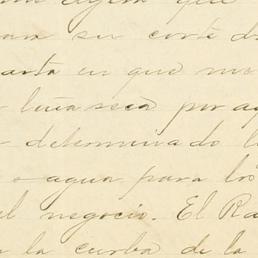 que
para su corte d
carta en que me
leña seca por a
determinado l
agua para los
el negocio. El Ra
la curba de la